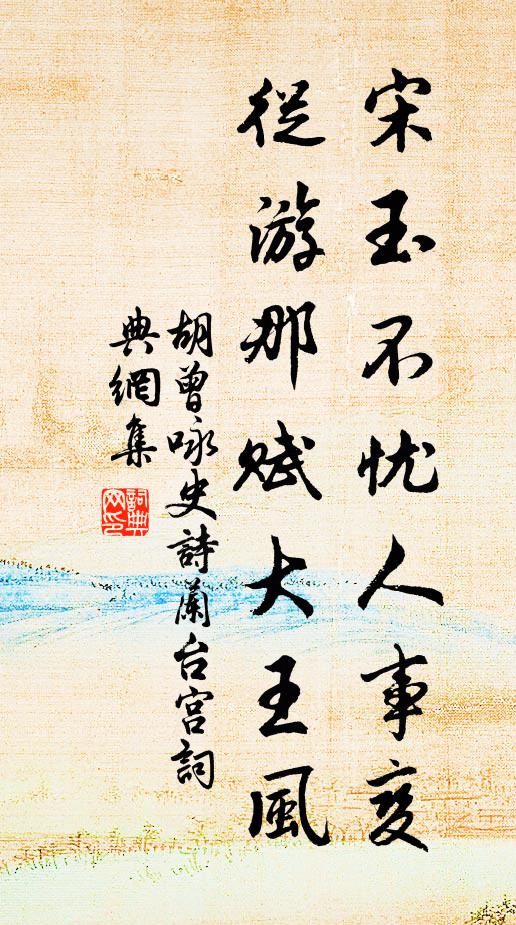 宋玉不忧人事变
從游那赋大王風
胡曾咏史詩蘭台宫詞
典網集
詞典
网印